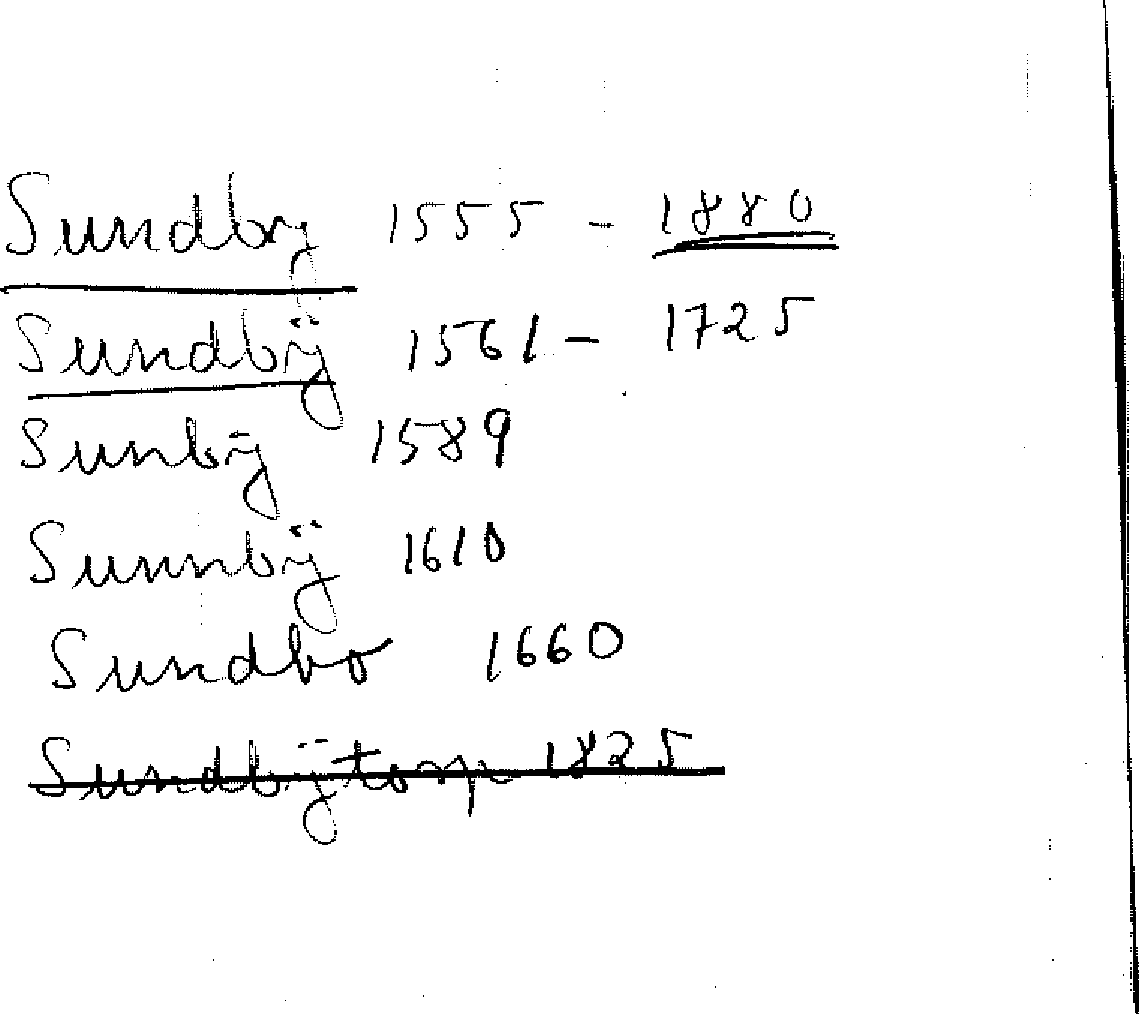 Sundby 1555 - 1880
Sundbÿ 1561 - 1725
Sunbÿ 1589
Sunnbÿ 1610
Sundbo 1660
Sundbÿtorp 1825